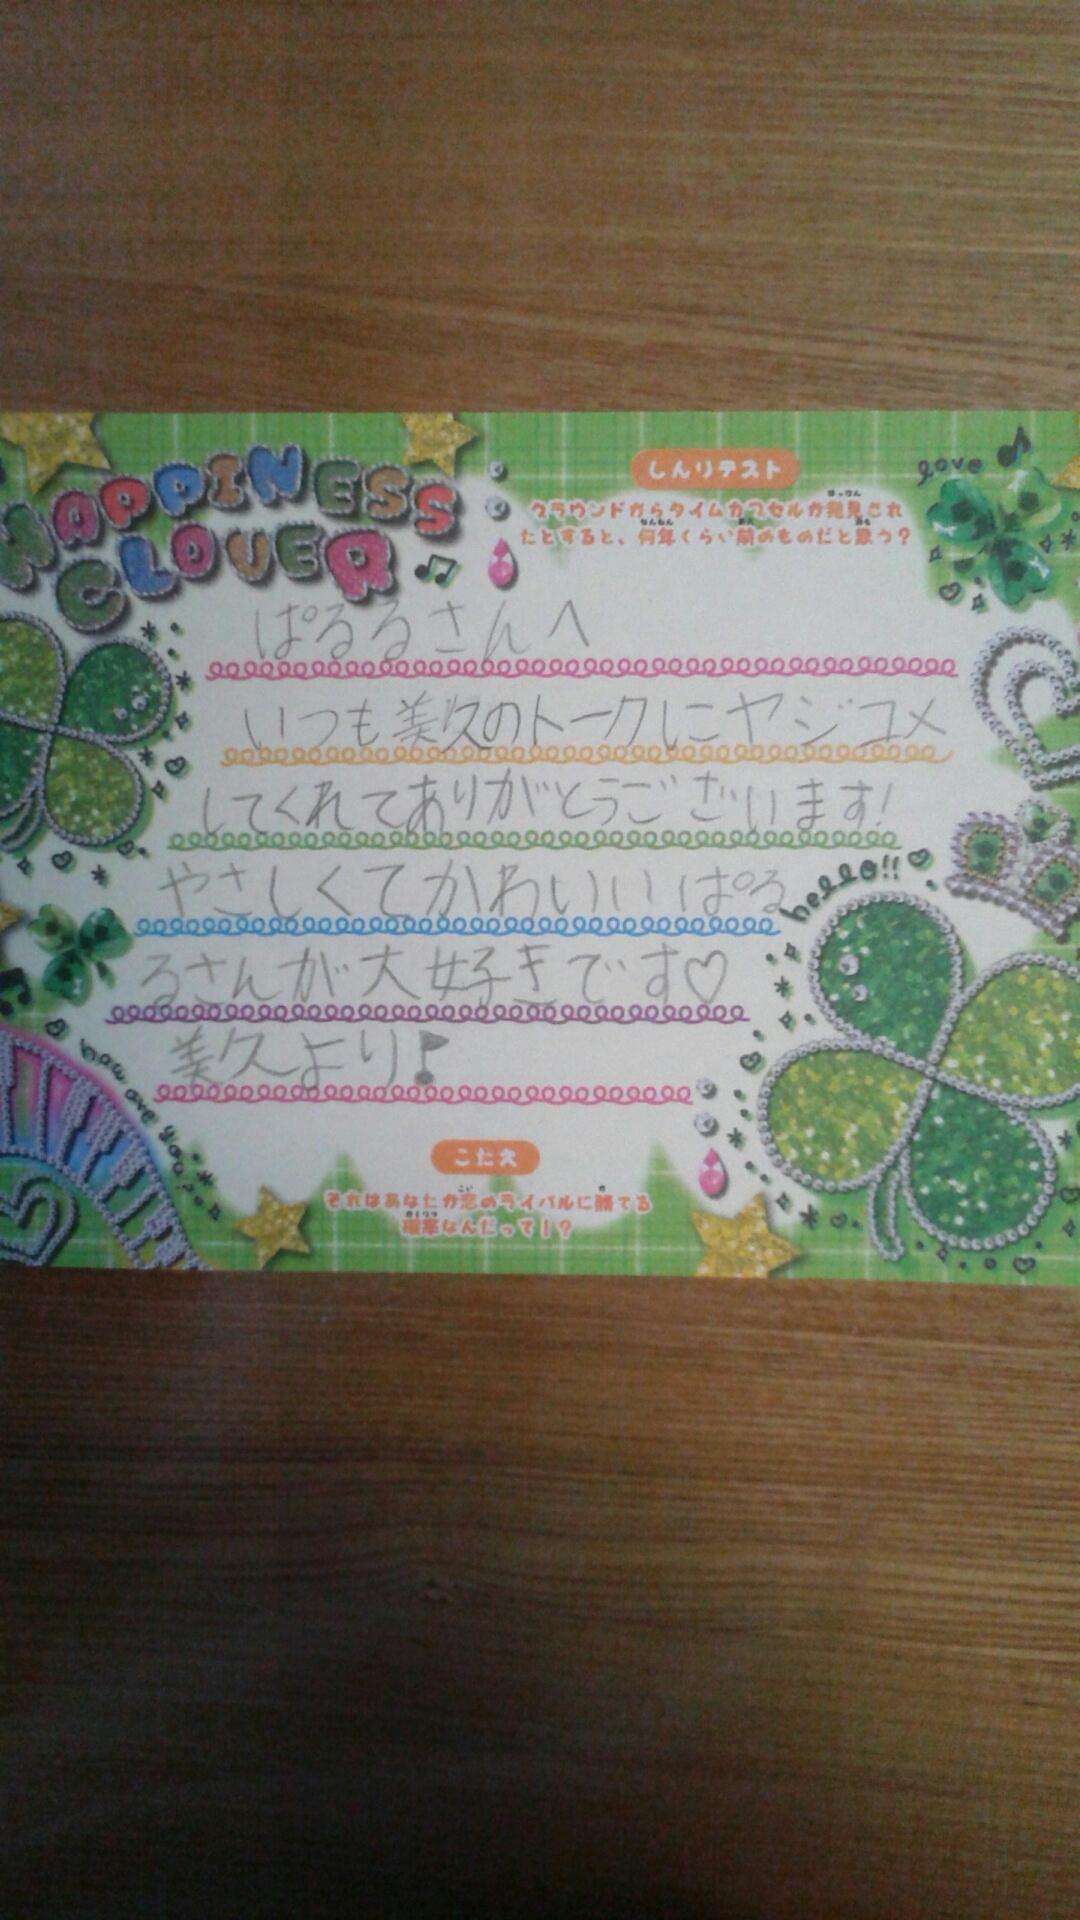 HAPPINESS
CLOVER
しんりテスト
グラウンドからタイムカプセルが発見され
たとすると、何年くらい前のものだと思う?
love
ぱるるさんへ
いつも美久のトークにヤジコメ
してくれてありがとうございます!
やさしくてかわいいぱる
hello!!
るさんが大好きです♡
美久より♪
how are you?
こたえ
それはあなたが恋のライバルに勝てる
確率なんだって!?